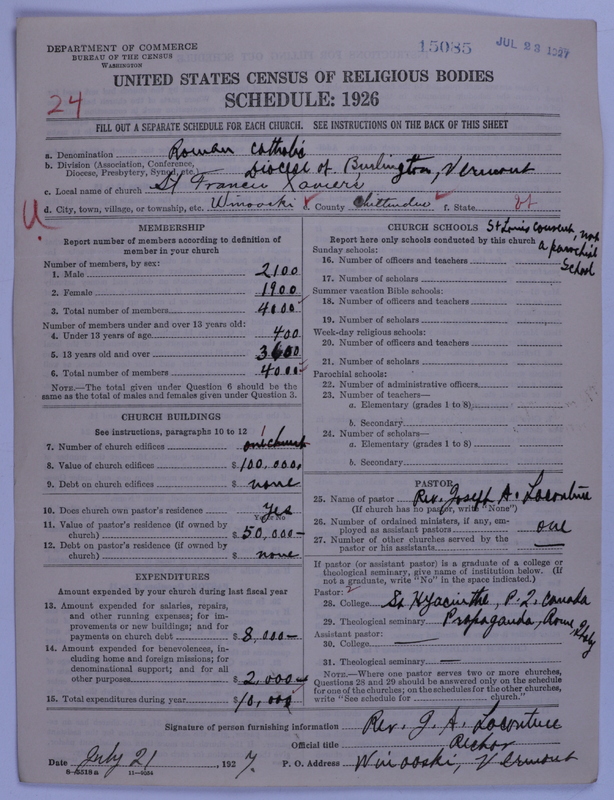 DEPARTMENT OF COMMERCE
BUREAU OF THE CENSUS
WASHINGTON
15085
JUL 23 1927
UNITED STATES CENSUS OF RELIGIOUS BODIES
SCHEDULE: 1926
24
FILL OUT A SEPARATE SCHEDULE FOR EACH CHURCH. SEE INSTRUCTIONS ON THE BACK OF THIS SHEET
a. Denomination Roman Catholic
b. Division (Association, Conference, Diocese, Presbytery, Synod, etc.) Diocese of Burlington, Vermont
c. Local name of church St Francis Xavier's
d. City, town, village, or township, etc. Winooski e. County Chittenden f. State
MEMBERSHIP
Report number of members according to definition of
member in your church
Number of members, by sex:
1. Male 2100
2. Female 1900
3. Total number of members 4000
Number of members under and over 13 years old:
4. Under 13 years of age 400
5. 13 years old and over 3600
6. Total number of members 4000
NOTE.—The total given under Question 6 should be the
same as the total of males and females given under Question 3.
CHURCH BUILDINGS
See instructions, paragraphs 10 to 12
7. Number of church edifices one church
8. Value of church edifices $100,000.
9. Debt on church edifices $ none
10. Does church own pastor's residence yes
Yes or No
11. Value of pastor's residence (if owned by
church) $50,000—
12. Debt on pastor's residence (if owned by
church) $ none
EXPENDITURES
Amount expended by your church during last fiscal year
13. Amount expended for salaries, repairs,
and other running expenses; for im-
provements or new buildings; and for
payments on church debt $8,000—
14. Amount expended for benevolences, in-
cluding home and foreign missions; for
denominational support; and for all
other purposes $2,000—
15. Total expenditures during year $10,000
CHURCH SCHOOLS St Louis Convent, not
Report here only schools conducted by this church a parochial
School
Sunday schools:
16. Number of officers and teachers
17. Number of scholars
Summer vacation Bible schools:
18. Number of officers and teachers
19. Number of scholars
Week-day religious schools:
20. Number of officers and teachers
21. Number of scholars
Parochial schools:
22. Number of administrative officers
23. Number of teachers—
a. Elementary (grades 1 to 8)
b. Secondary
24. Number of scholars—
a. Elementary (grades 1 to 8)
b. Secondary
PASTOR
25. Name of pastor Rev. Joseph A. Lacouture
(If church has no pastor, write "None")
26. Number of ordained ministers, if any, em-
ployed as assistant pastors one
27. Number of other churches served by the
pastor or his assistants —
If pastor (or assistant pastor) is a graduate of a college or
theological seminary, give name of institution below. (If
not a graduate, write "No" in the space indicated.)
Pastor:
28. College St Hyacinthe, P.Q. Canada
29. Theological seminary Propaganda, Rome Italy
Assistant pastor:
30. College —
31. Theological seminary —
NOTE.—Where one pastor serves two or more churches,
Questions 28 and 29 should be answered only on the schedule
for one of the churches; on the schedules for the other churches,
write "See schedule for church."
Signature of person furnishing information Rev. J. A. Lacouture
Official title Rector
Date July 21 1927 P. O. Address Winooski, Vermont
8-5518a 11-9084